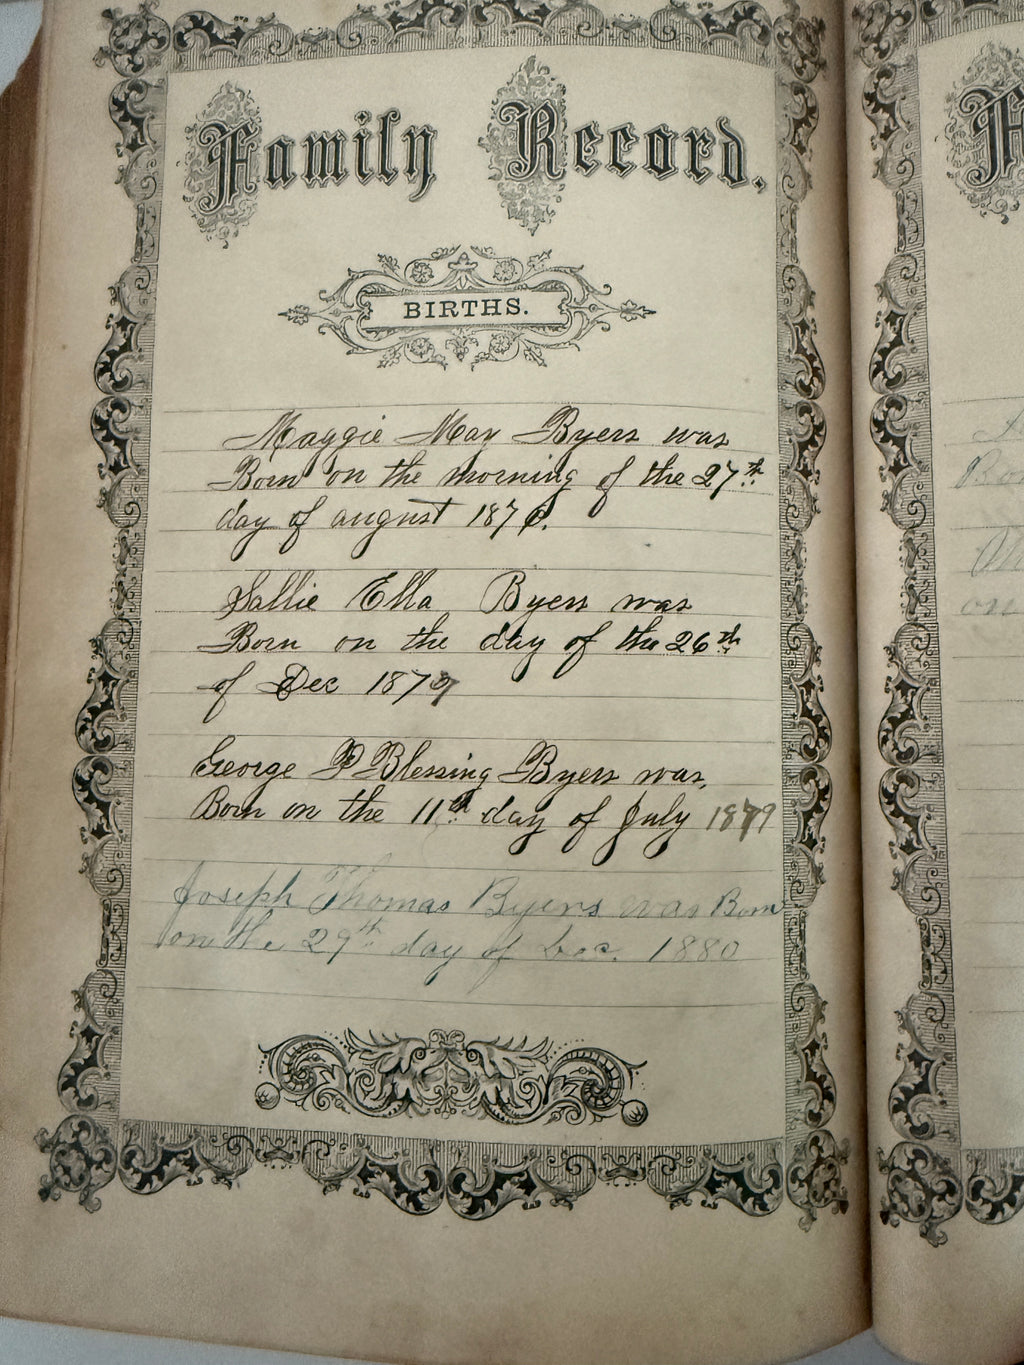 Family Record.
BIRTHS.
Maggie May Byers was
Born on the morning of the 27th
day of august 1876.
Sallie Ella Byers was
Born on the day of the 26th
of Dec 1877
George P Blessing Byers was,
Born on the 11th day of July 1879
Joseph Thomas Byers was Born
on the 29th day of Dec. 1880